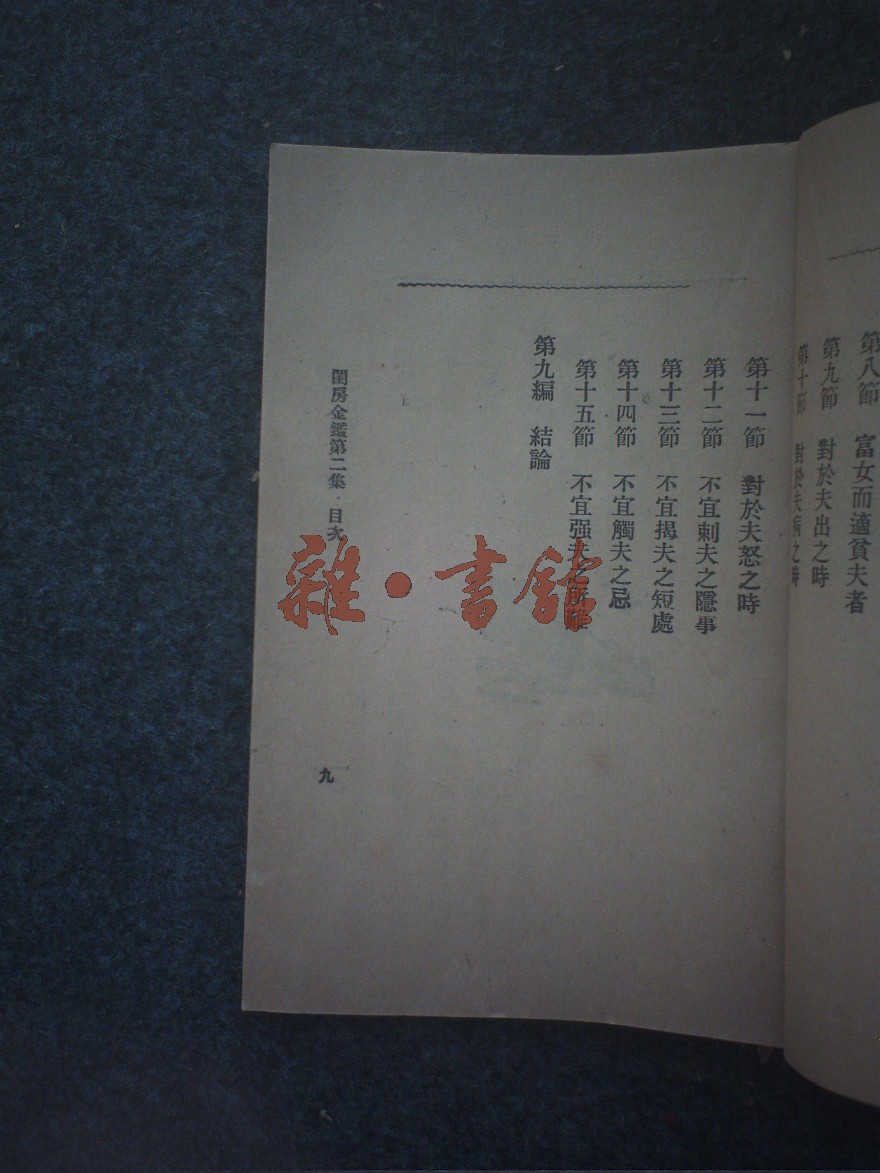 第八節　富女而適貧夫者
第九節　對於夫出之時
第十節　對於夫病之時
第十一節　對於夫怒之時
第十二節　不宜刺夫之隱事
第十三節　不宜揭夫之短處
第十四節　不宜觸夫之忌
第十五節　不宜强夫之所難
第九編　結論
閨房金鑑第二集·目次
九
雜·書館